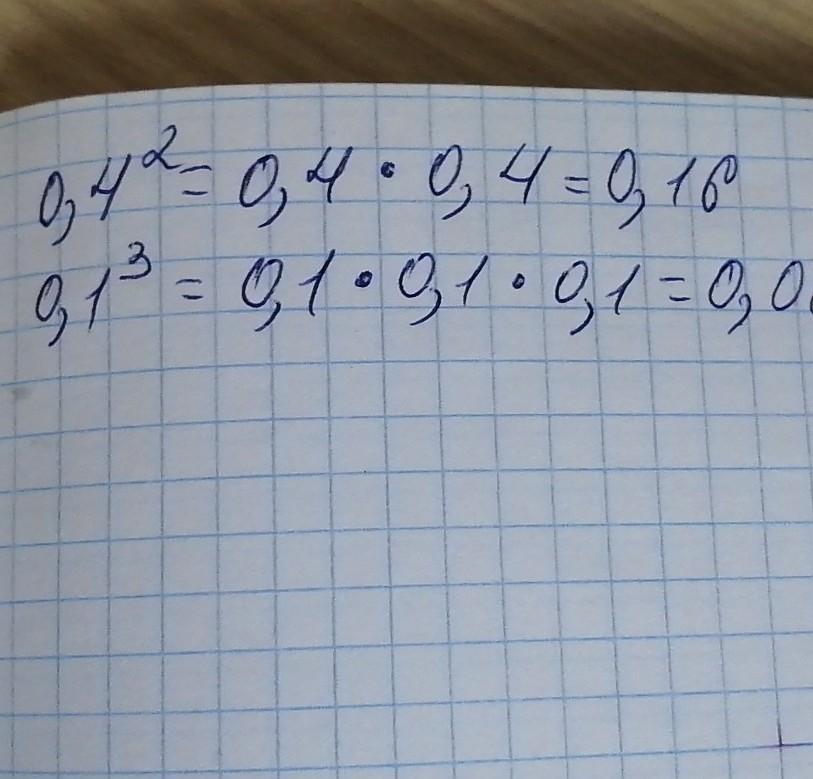 0,4² = 0,4 · 0,4 = 0,16
0,1³ = 0,1 · 0,1 · 0,1 = 0,0